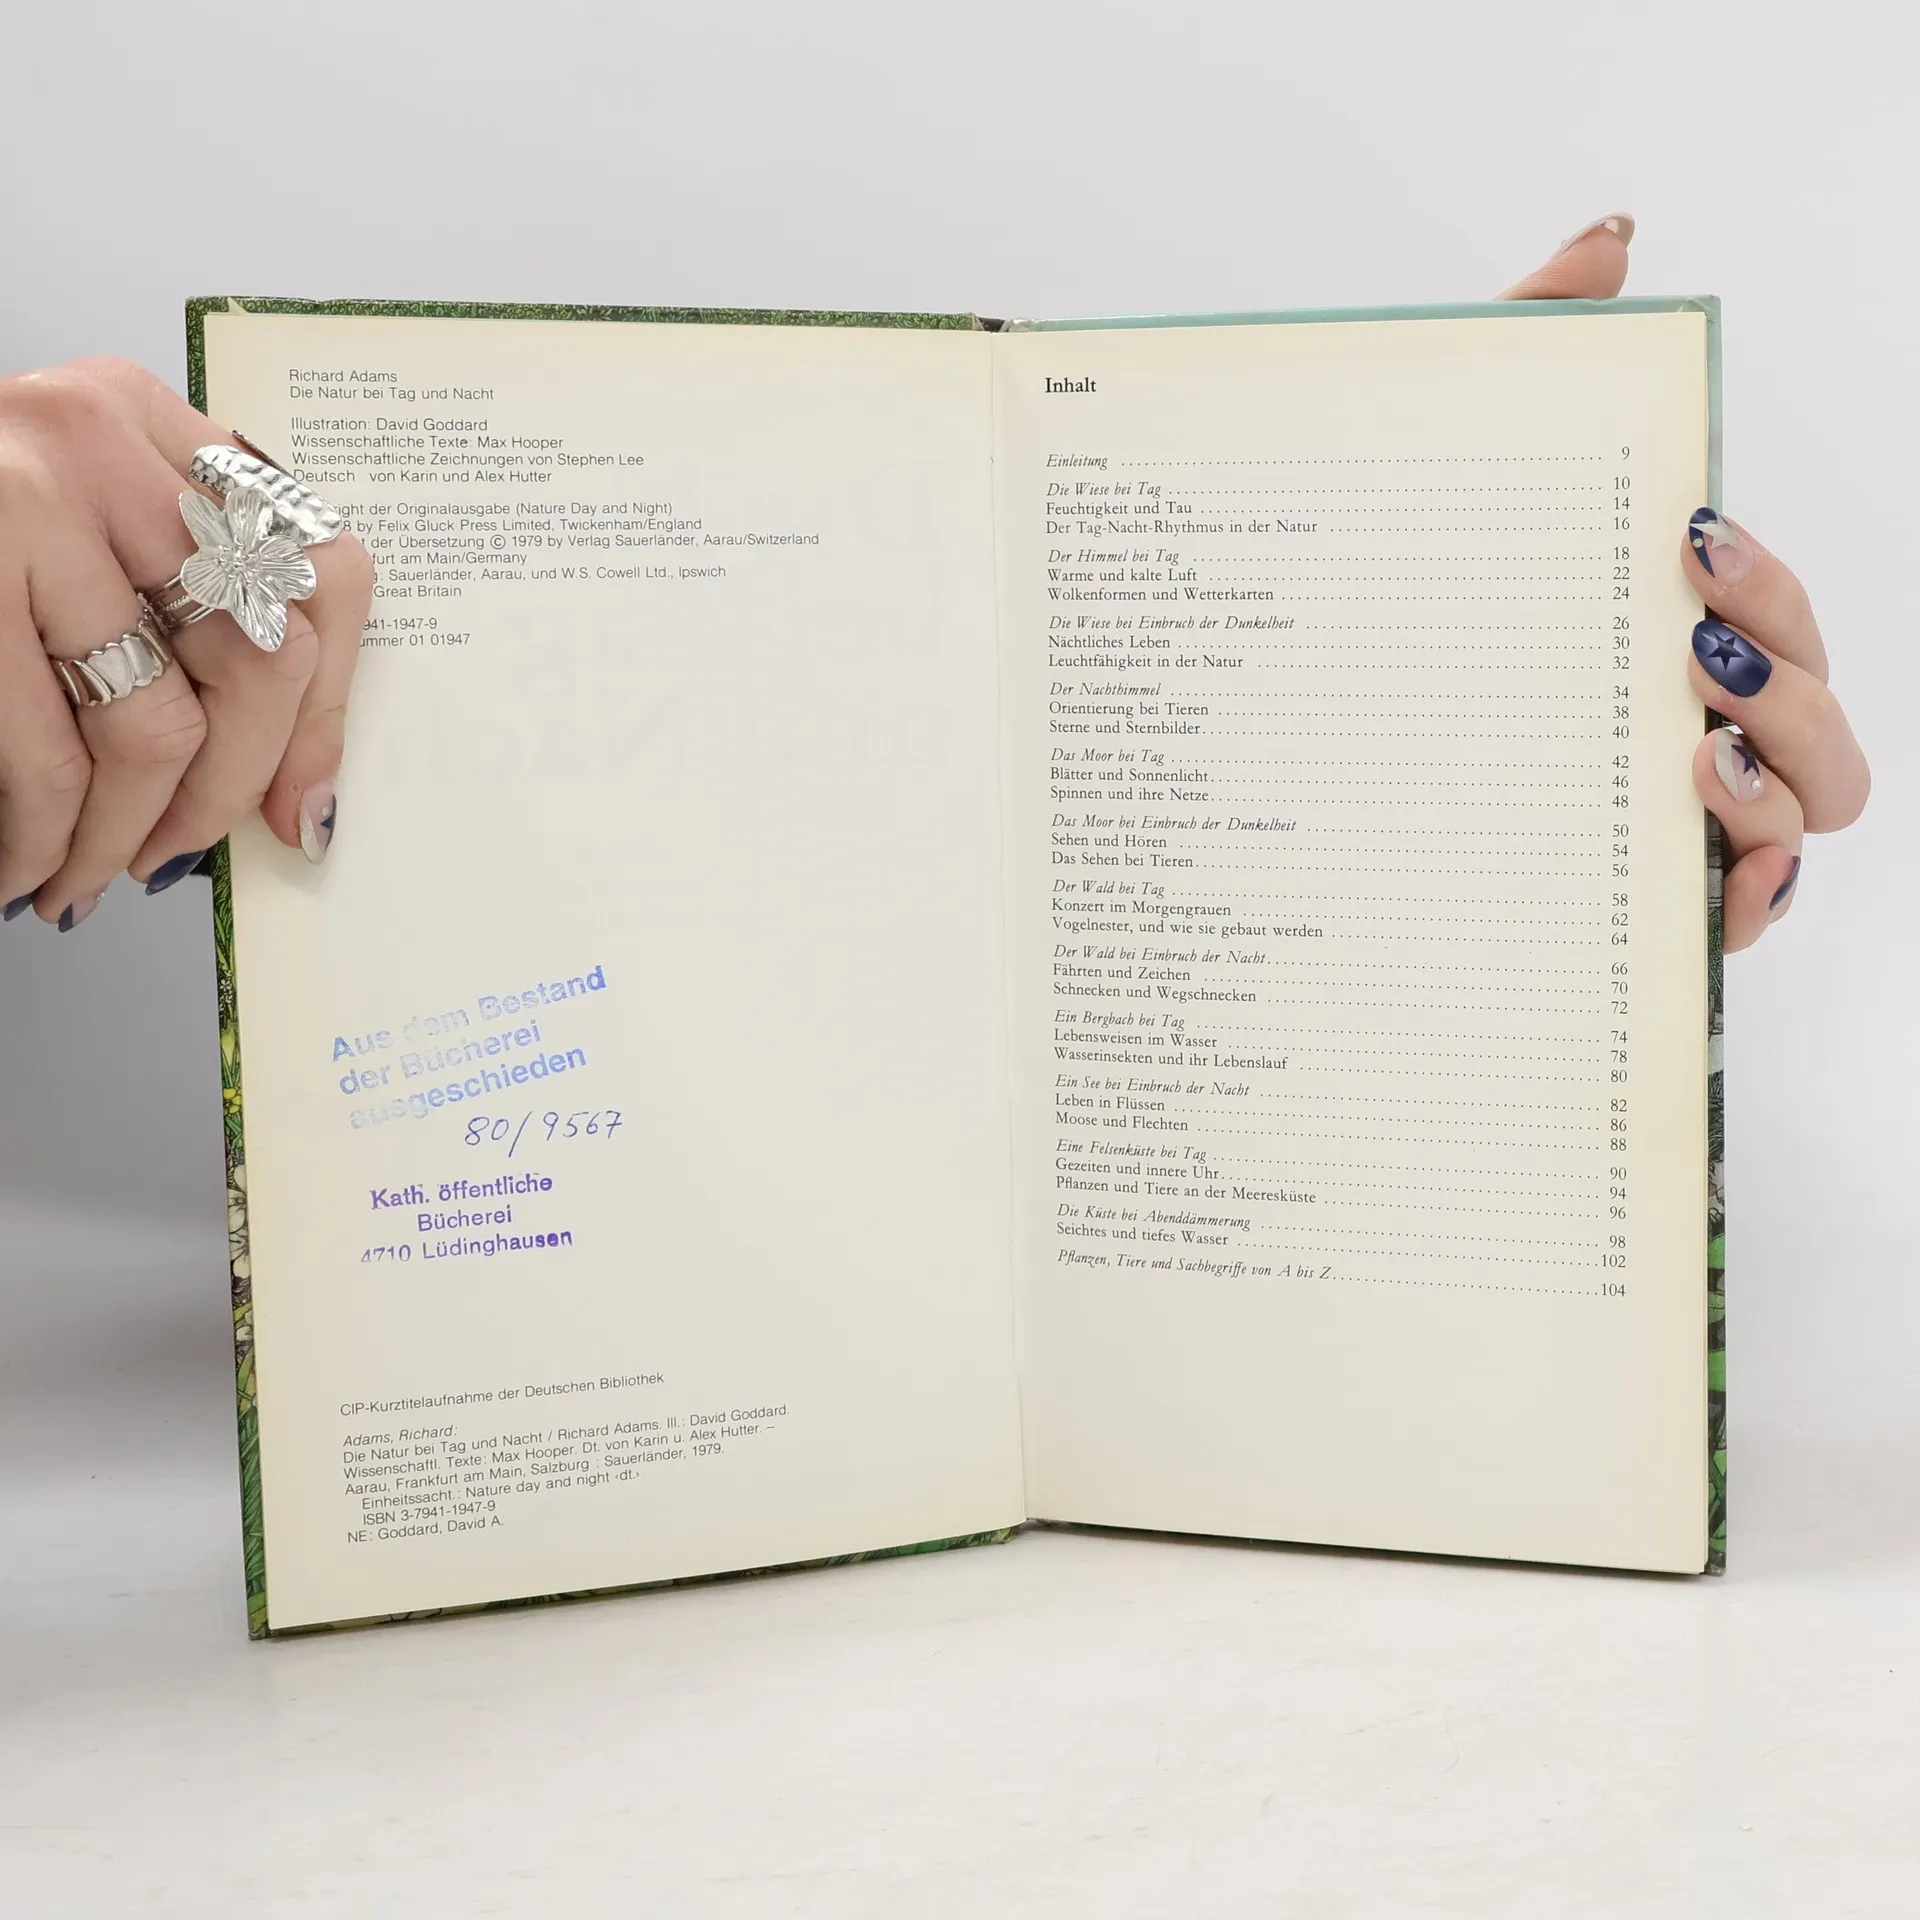 Richard Adams
Die Natur bei Tag und Nacht
Illustration: David Goddard
Wissenschaftliche Texte: Max Hooper
Wissenschaftliche Zeichnungen von Stephen Lee
Deutsch von Karin und Alex Hutter
der Originalausgabe (Nature Day and Night)
by Felix Gluck Press Limited, Twickenham/England
der Übersetzung © 1979 by Verlag Sauerländer, Aarau/Switzerland
am Main/Germany
: Sauerländer, Aarau, und W.S. Cowell Ltd., Ipswich
Great Britain
941-1947-9
01 01947
Aus dem Bestand
der Bücherei
ausgeschieden
80/9567
Kath. öffentliche
Bücherei
4710 Lüdinghausen
CIP-Kurztitelaufnahme der Deutschen Bibliothek
Adams, Richard:
Die Natur bei Tag und Nacht / Richard Adams. Ill.: David Goddard.
Wissenschaftl. Texte: Max Hooper. Dt. von Karin u. Alex Hutter. –
Aarau, Frankfurt am Main, Salzburg : Sauerländer, 1979.
Einheitssacht.: Nature day and night ‹dt.›
ISBN 3-7941-1947-9
NE: Goddard, David A.
Inhalt
Einleitung ........ 9
Die Wiese bei Tag ........ 10
Feuchtigkeit und Tau ........ 14
Der Tag-Nacht-Rhythmus in der Natur ........ 16
Der Himmel bei Tag ........ 18
Warme und kalte Luft ........ 22
Wolkenformen und Wetterkarten ........ 24
Die Wiese bei Einbruch der Dunkelheit ........ 26
Nächtliches Leben ........ 30
Leuchtfähigkeit in der Natur ........ 32
Der Nachthimmel ........ 34
Orientierung bei Tieren ........ 38
Sterne und Sternbilder ........ 40
Das Moor bei Tag ........ 42
Blätter und Sonnenlicht ........ 46
Spinnen und ihre Netze ........ 48
Das Moor bei Einbruch der Dunkelheit ........ 50
Sehen und Hören ........ 54
Das Sehen bei Tieren ........ 56
Der Wald bei Tag ........ 58
Konzert im Morgengrauen ........ 62
Vogelnester, und wie sie gebaut werden ........ 64
Der Wald bei Einbruch der Nacht ........ 66
Fährten und Zeichen ........ 70
Schnecken und Wegschnecken ........ 72
Ein Bergbach bei Tag ........ 74
Lebensweisen im Wasser ........ 78
Wasserinsekten und ihr Lebenslauf ........ 80
Ein See bei Einbruch der Nacht ........ 82
Leben in Flüssen ........ 86
Moose und Flechten ........ 88
Eine Felsenküste bei Tag ........ 90
Gezeiten und innere Uhr ........ 94
Pflanzen und Tiere an der Meeresküste ........ 96
Die Küste bei Abenddämmerung ........ 98
Seichtes und tiefes Wasser ........ 102
Pflanzen, Tiere und Sachbegriffe von A bis Z ........ 104